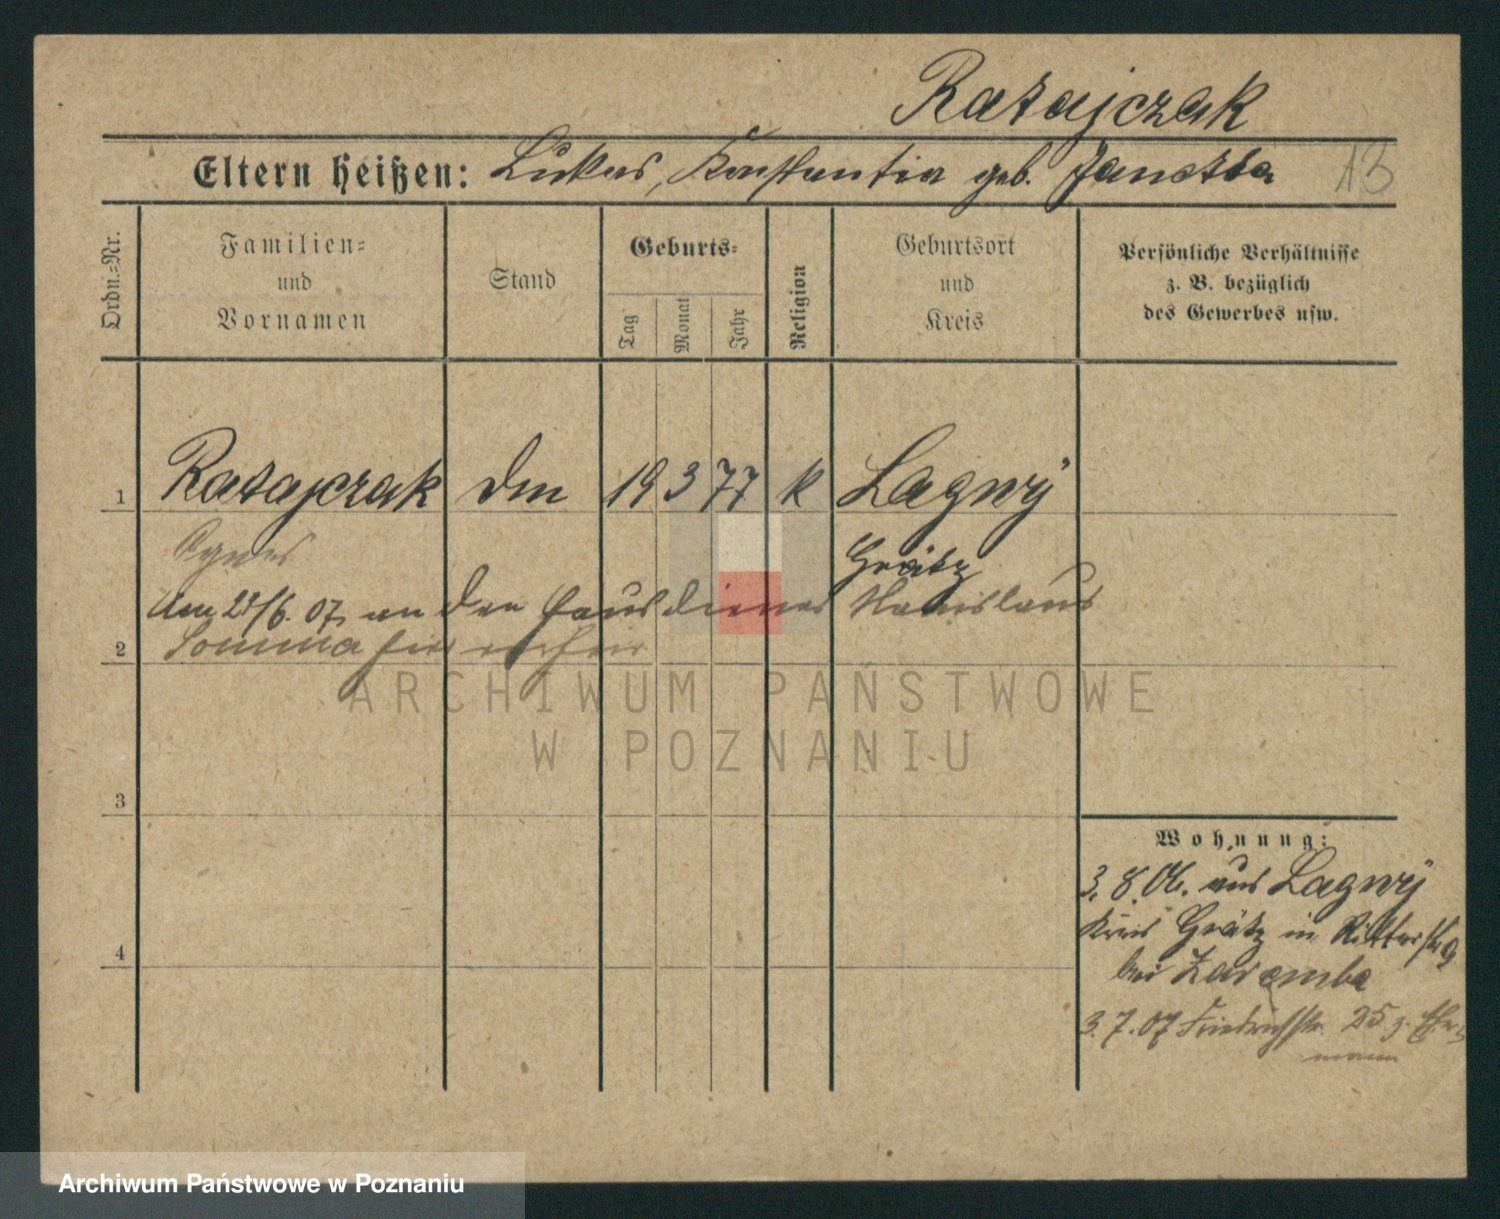 Ratajczak
Eltern heißen: Lukas, Konstantia geb. Janetzka
13
Ordn.=Nr.
Familien=
und
Vornamen
Stand
Geburts=
Tag
Monat
Jahr
Religion
Geburtsort
und
Kreis
Persönliche Verhältnisse
z. B. bezüglich
des Gewerbes usw.
1 Ratajczak 19 3 77 k Lagwÿ
Agnes Grätz
den 6. 07 an den Hausdiener Stanislaus
2 Somma hier
3
Wohnung:
3. 8. 06. aus Lagwÿ
Kreis Grätz in Ritterstr 9
4
bei Zaremba
3. 7. 07 Friedrichstr. 25 z. Ehe=
mann
ARCHIWUM PAŃSTWOWE
W POZNANIU
Archiwum Państwowe w Poznaniu